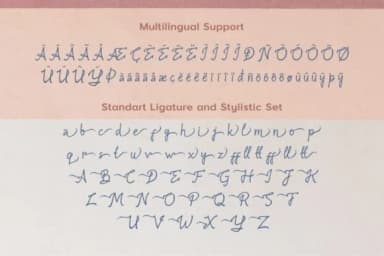 Multilingual Support
ÀÁÂÃÄÅÆÇÈÉÊËÌÍÎÏÐÑÒÓÔÕÖØ
ÙÚÛÜÝÞàáâãäåæçèéêëìíîïðñòóôõöøùúûüýþÿ
Standart Ligature and Stylistic Set
a b c d e f g h i j k l m n o p
q r s t u v w x y z
A B C D E F G H I J K
L M N O P Q R S T
U V W X Y Z